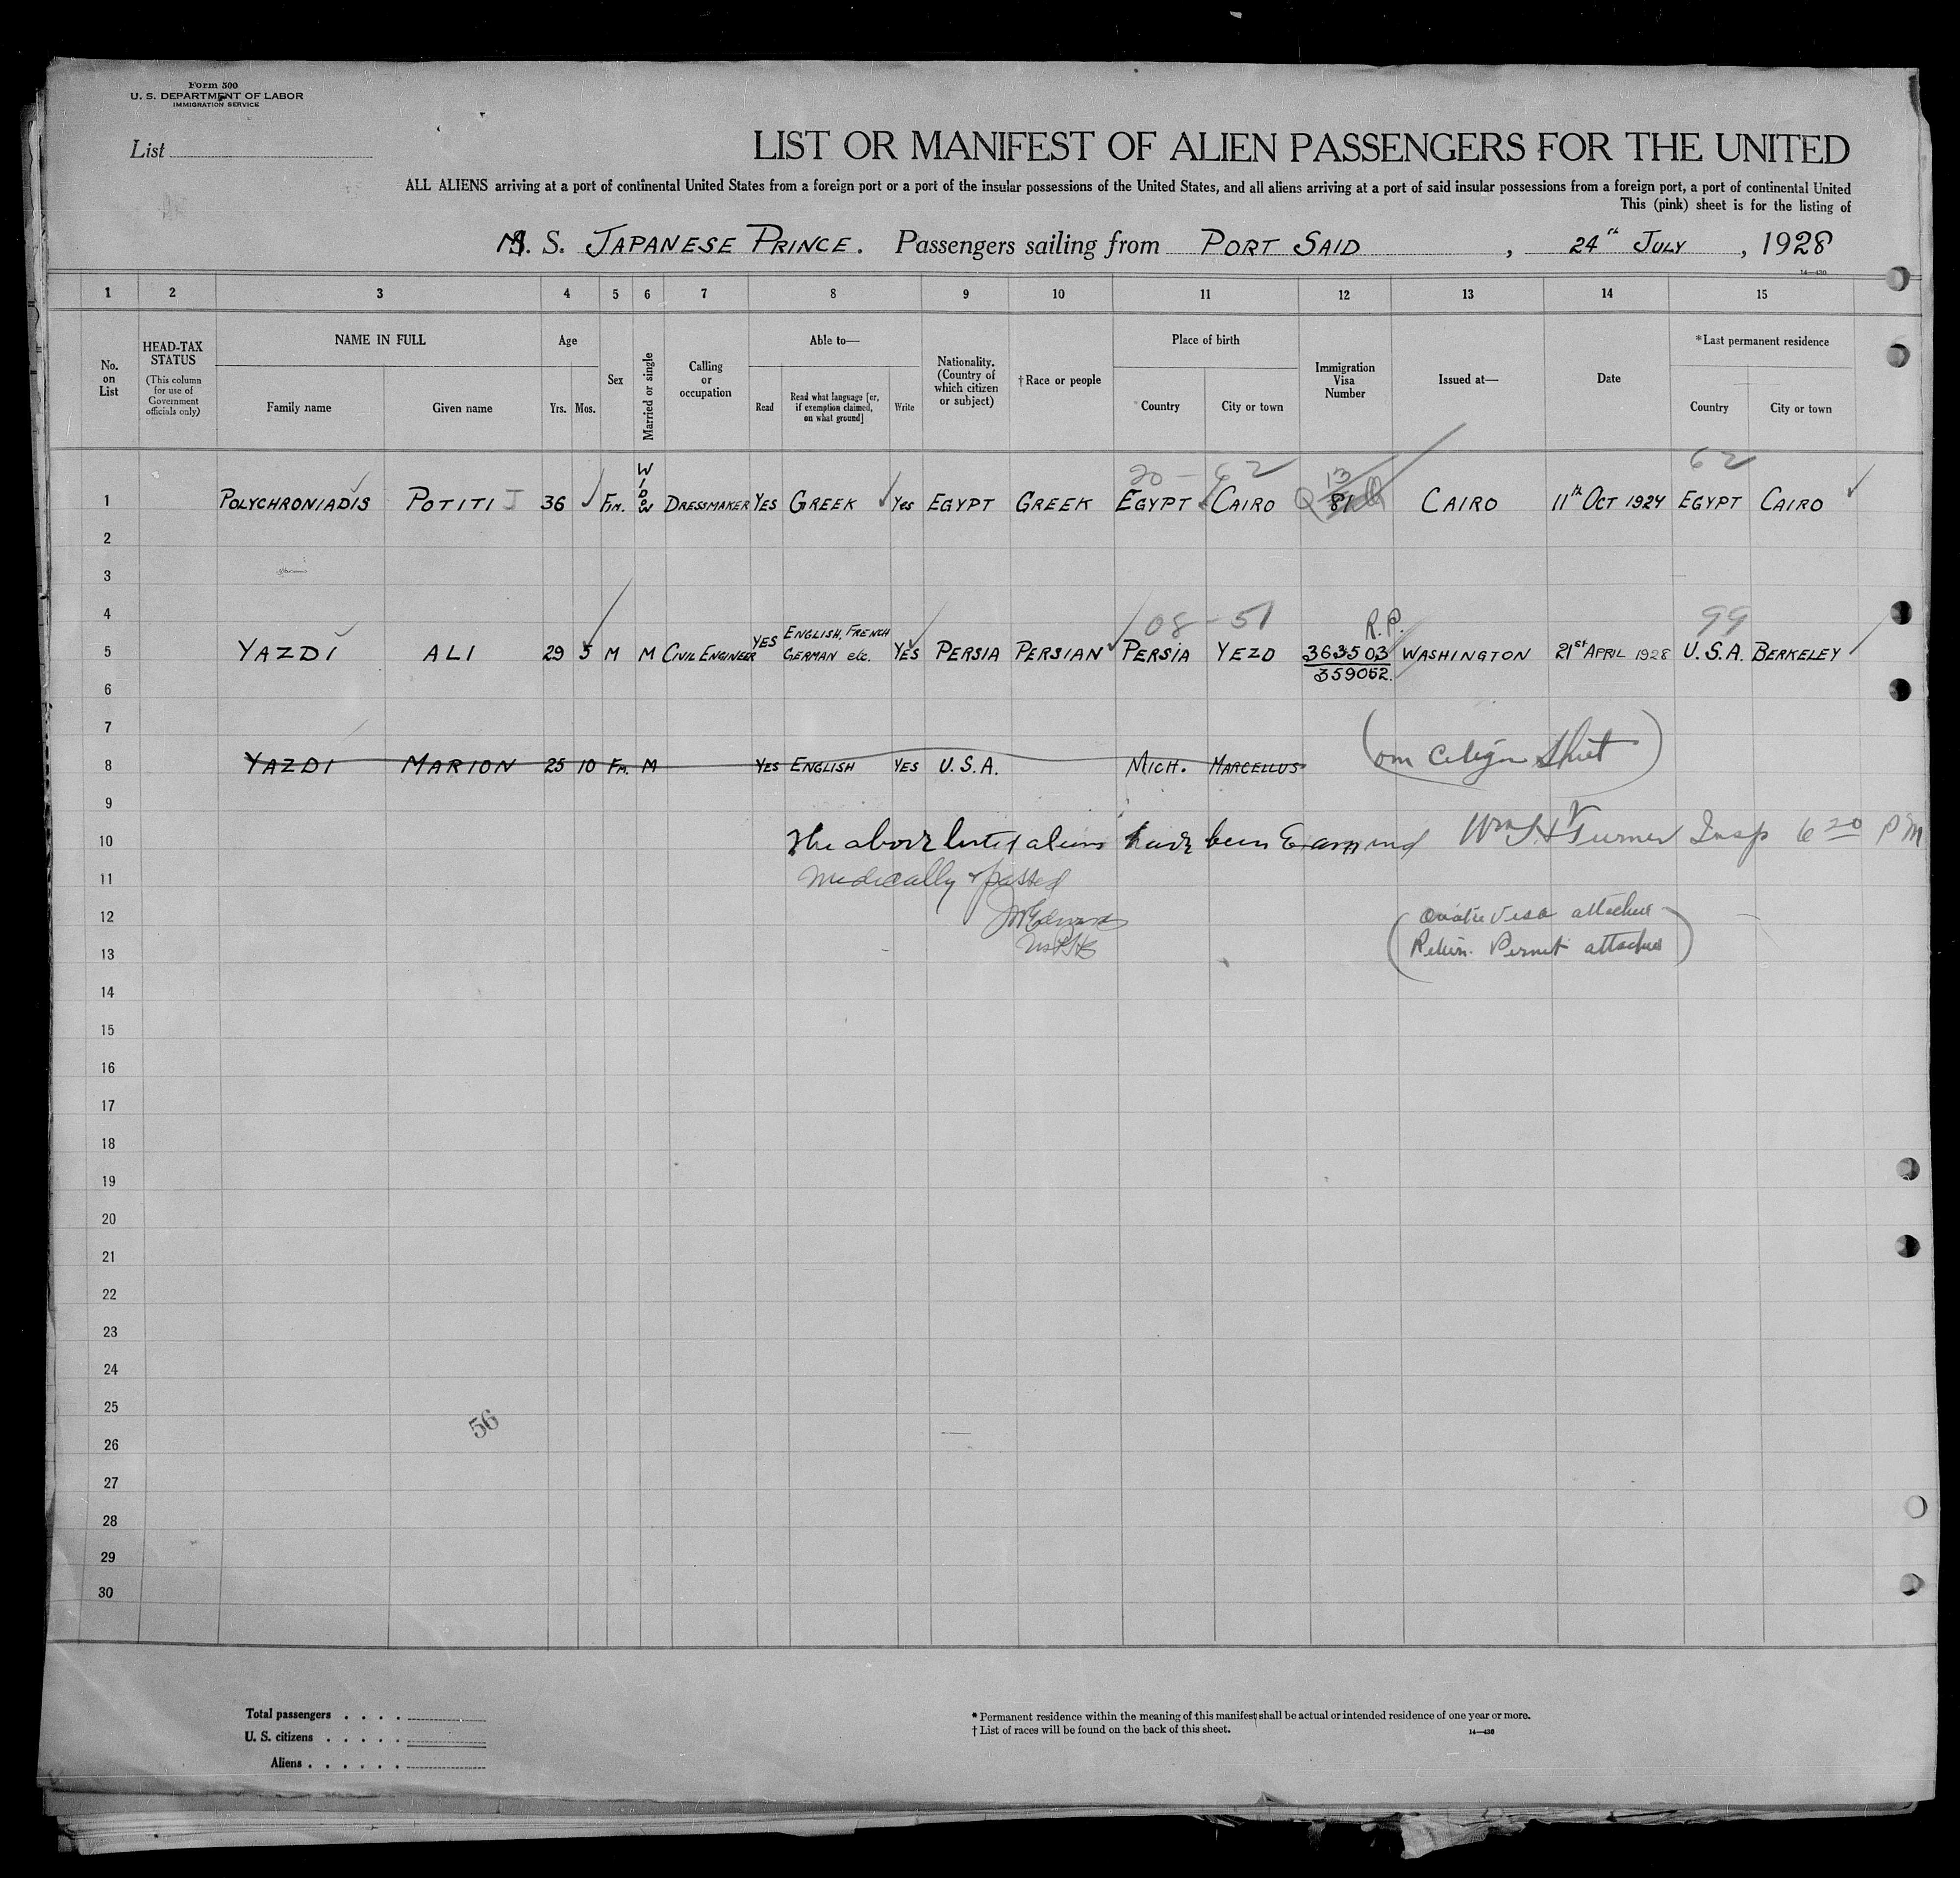 Form 500
U. S. DEPARTMENT OF LABOR
IMMIGRATION SERVICE
List
LIST OR MANIFEST OF ALIEN PASSENGERS FOR THE UNITED
ALL ALIENS arriving at a port of continental United States from a foreign port or a port of the insular possessions of the United States, and all aliens arriving at a port of said insular possessions from a foreign port, a port of continental United
This (pink) sheet is for the listing of
M. S. JAPANESE PRINCE. Passengers sailing from PORT SAID, 24th JULY, 1928
14—430
1 2 3 4 5 6 7 8 9 10 11 12 13 14 15
No. on List
HEAD-TAX STATUS
(This column for use of Government officials only)
NAME IN FULL
Family name
Given name
Age
Yrs.
Mos.
Sex
Married or single
Calling or occupation
Able to—
Read
Read what language [or, if exemption claimed, on what ground]
Write
Nationality. (Country of which citizen or subject)
†Race or people
Place of birth
Country
City or town
Immigration Visa Number
Issued at—
Date
*Last permanent residence
Country
City or town
20 - 62 13 62
1 POLYCHRONIADIS POTITI J 36 FM. WIDOW DRESSMAKER YES GREEK Yes EGYPT GREEK EGYPT CAIRO Q 81 CAIRO 11th OCT 1924 EGYPT CAIRO
2
3
4
08 - 51 R.P. 99
5 YAZDI ALI 29 5 M M CIVIL ENGINEER YES ENGLISH, FRENCH GERMAN etc. YES PERSIA PERSIAN PERSIA YEZD 363503 WASHINGTON 21st APRIL 1928 U.S.A. BERKELEY
359052.
6
7
8 YAZDI MARION 25 10 FM. M YES ENGLISH YES U.S.A. MICH. MARCELLUS
(on Citizen Sheet)
9
10 The above listed aliens have been Examined Turner Insp 6 20 PM
11 medically & passed
12 Quota Visa attached
13 Return Permit attached
14
15
16
17
18
19
20
21
22
23
24
25
56
26
27
28
29
30
Total passengers
U. S. citizens
Aliens
* Permanent residence within the meaning of this manifest shall be actual or intended residence of one year or more.
† List of races will be found on the back of this sheet.
14—430